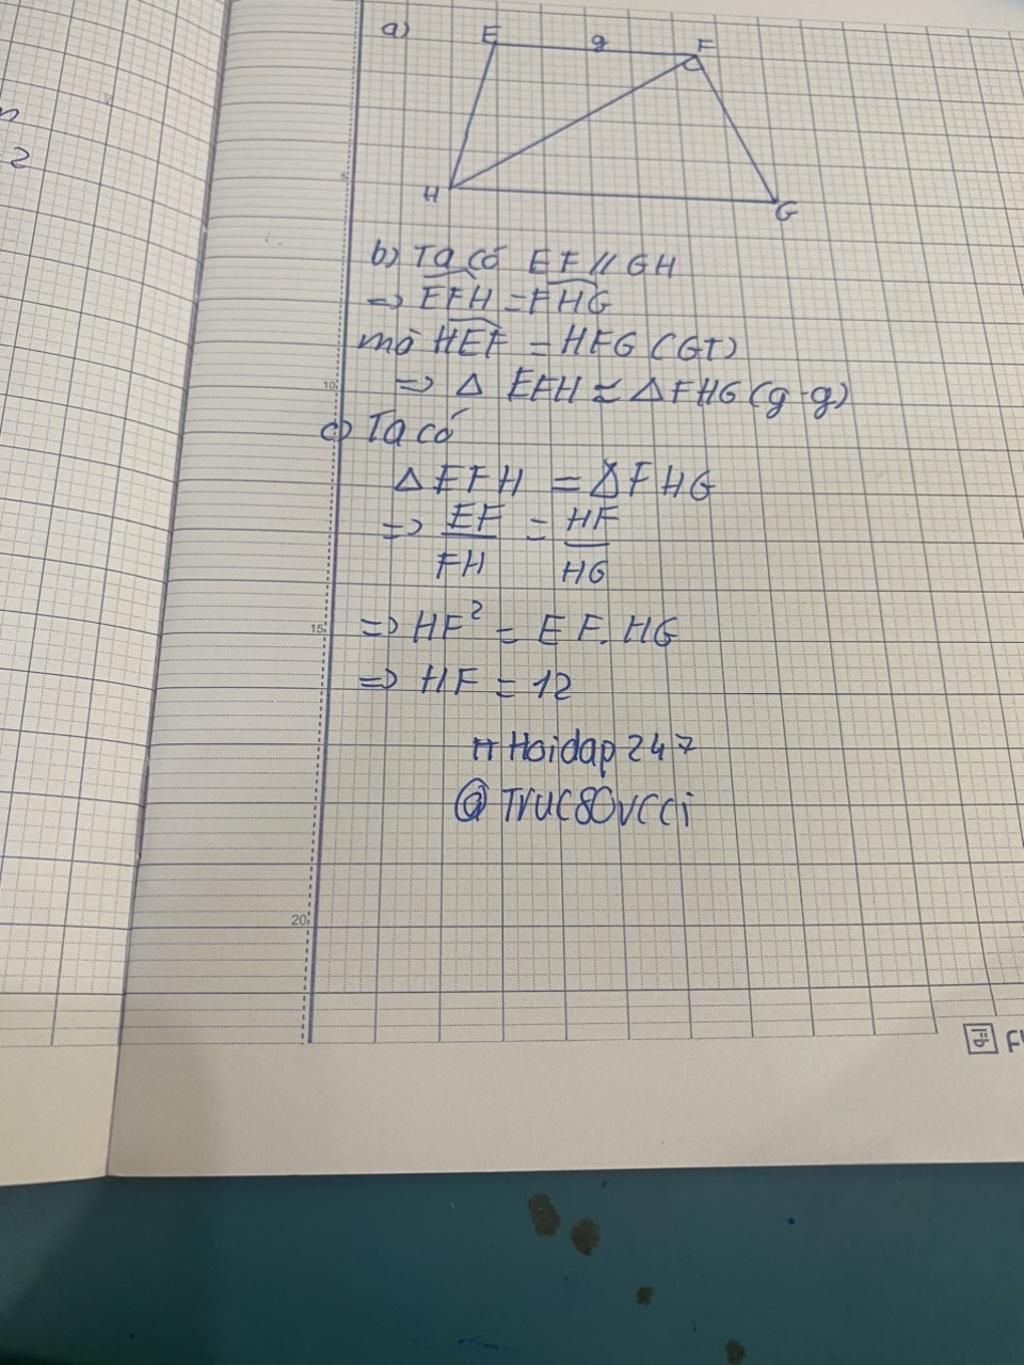 n
2
a) E 9 F
5
H G
b) Ta có EF // GH
=> EFH = FHG
mà HEF = HFG (GT)
10
=> Δ EFH ≃ Δ FHG (g-g)
c) Ta có
Δ EFH = Δ FHG
=> EF/FH = HF/HG
15
=> HF² = EF. HG
=> HF = 12
# Hoidap 247
@ Truc80vcci
20